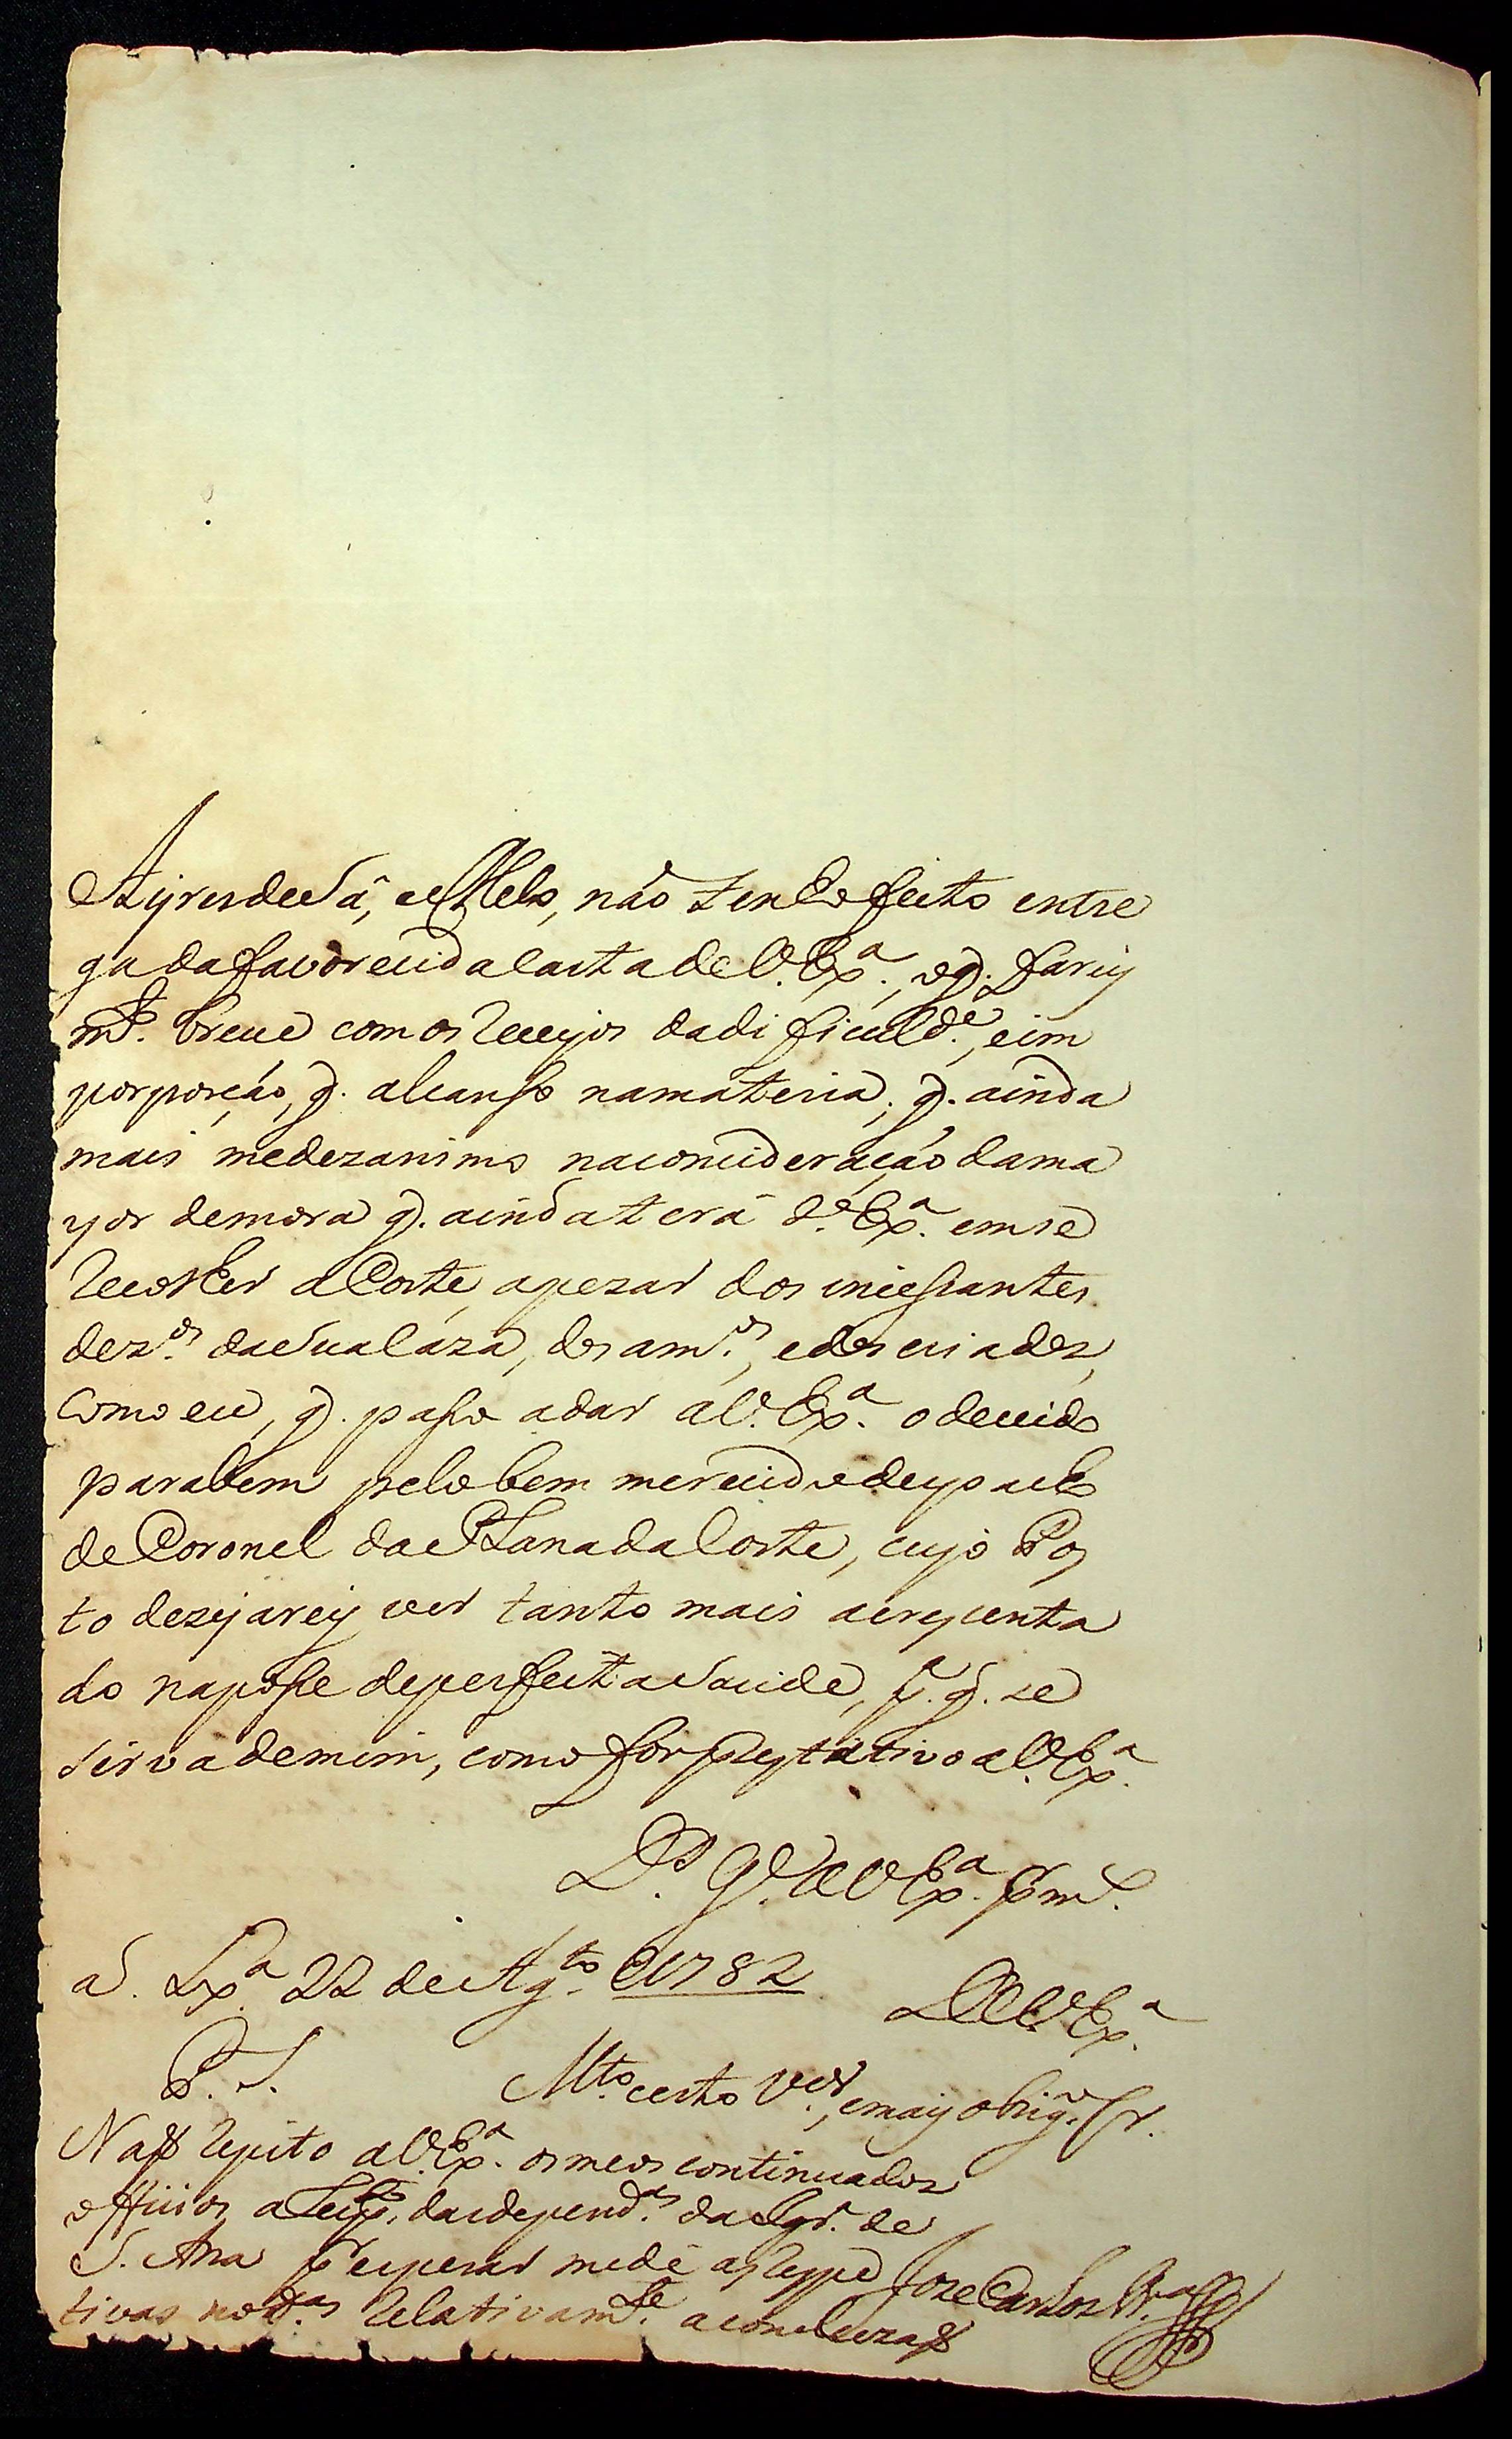 Ayres de Sâ, e Mello, não tenho feito entre
ga da favorecida carta de V. Exª., o q. farey
mto. breve com os receyos da dificulde., e im
porporção, q. alcanso na materia; q. ainda
mais me dezanimo na concideração da ma
yor demora q. ainda terá Vª. Exª. em se
recolher a Corte, apezar dos incessantes
dezos. da Sua Caza, dos amos., e dos criados,
como eu, q. passo a dar a V. Exª. o devido
parabem pelo bem merecido despacho
de Coronel da Plana da Corte, cujo Pos
to dezejarey ver tanto mais acrescenta
do na posse de perfeita Saude, pª. q. se
sirva de mim, como for prestativo a V Exª.
Ds. Ge. a V Exª. por ms. as.
Lxª. 22 de Agto. 1782
De V. Exª.
P. S.
Mto. certo Vor., e mais obrigº. Cr.
Não repito a V. Exª. os meos continuados
officios, a respto. das dependas. da Sgrª. de
S. Ana por esperar me dê as respe
tivas notas. relativamte. a concluzão
Joze Carlos